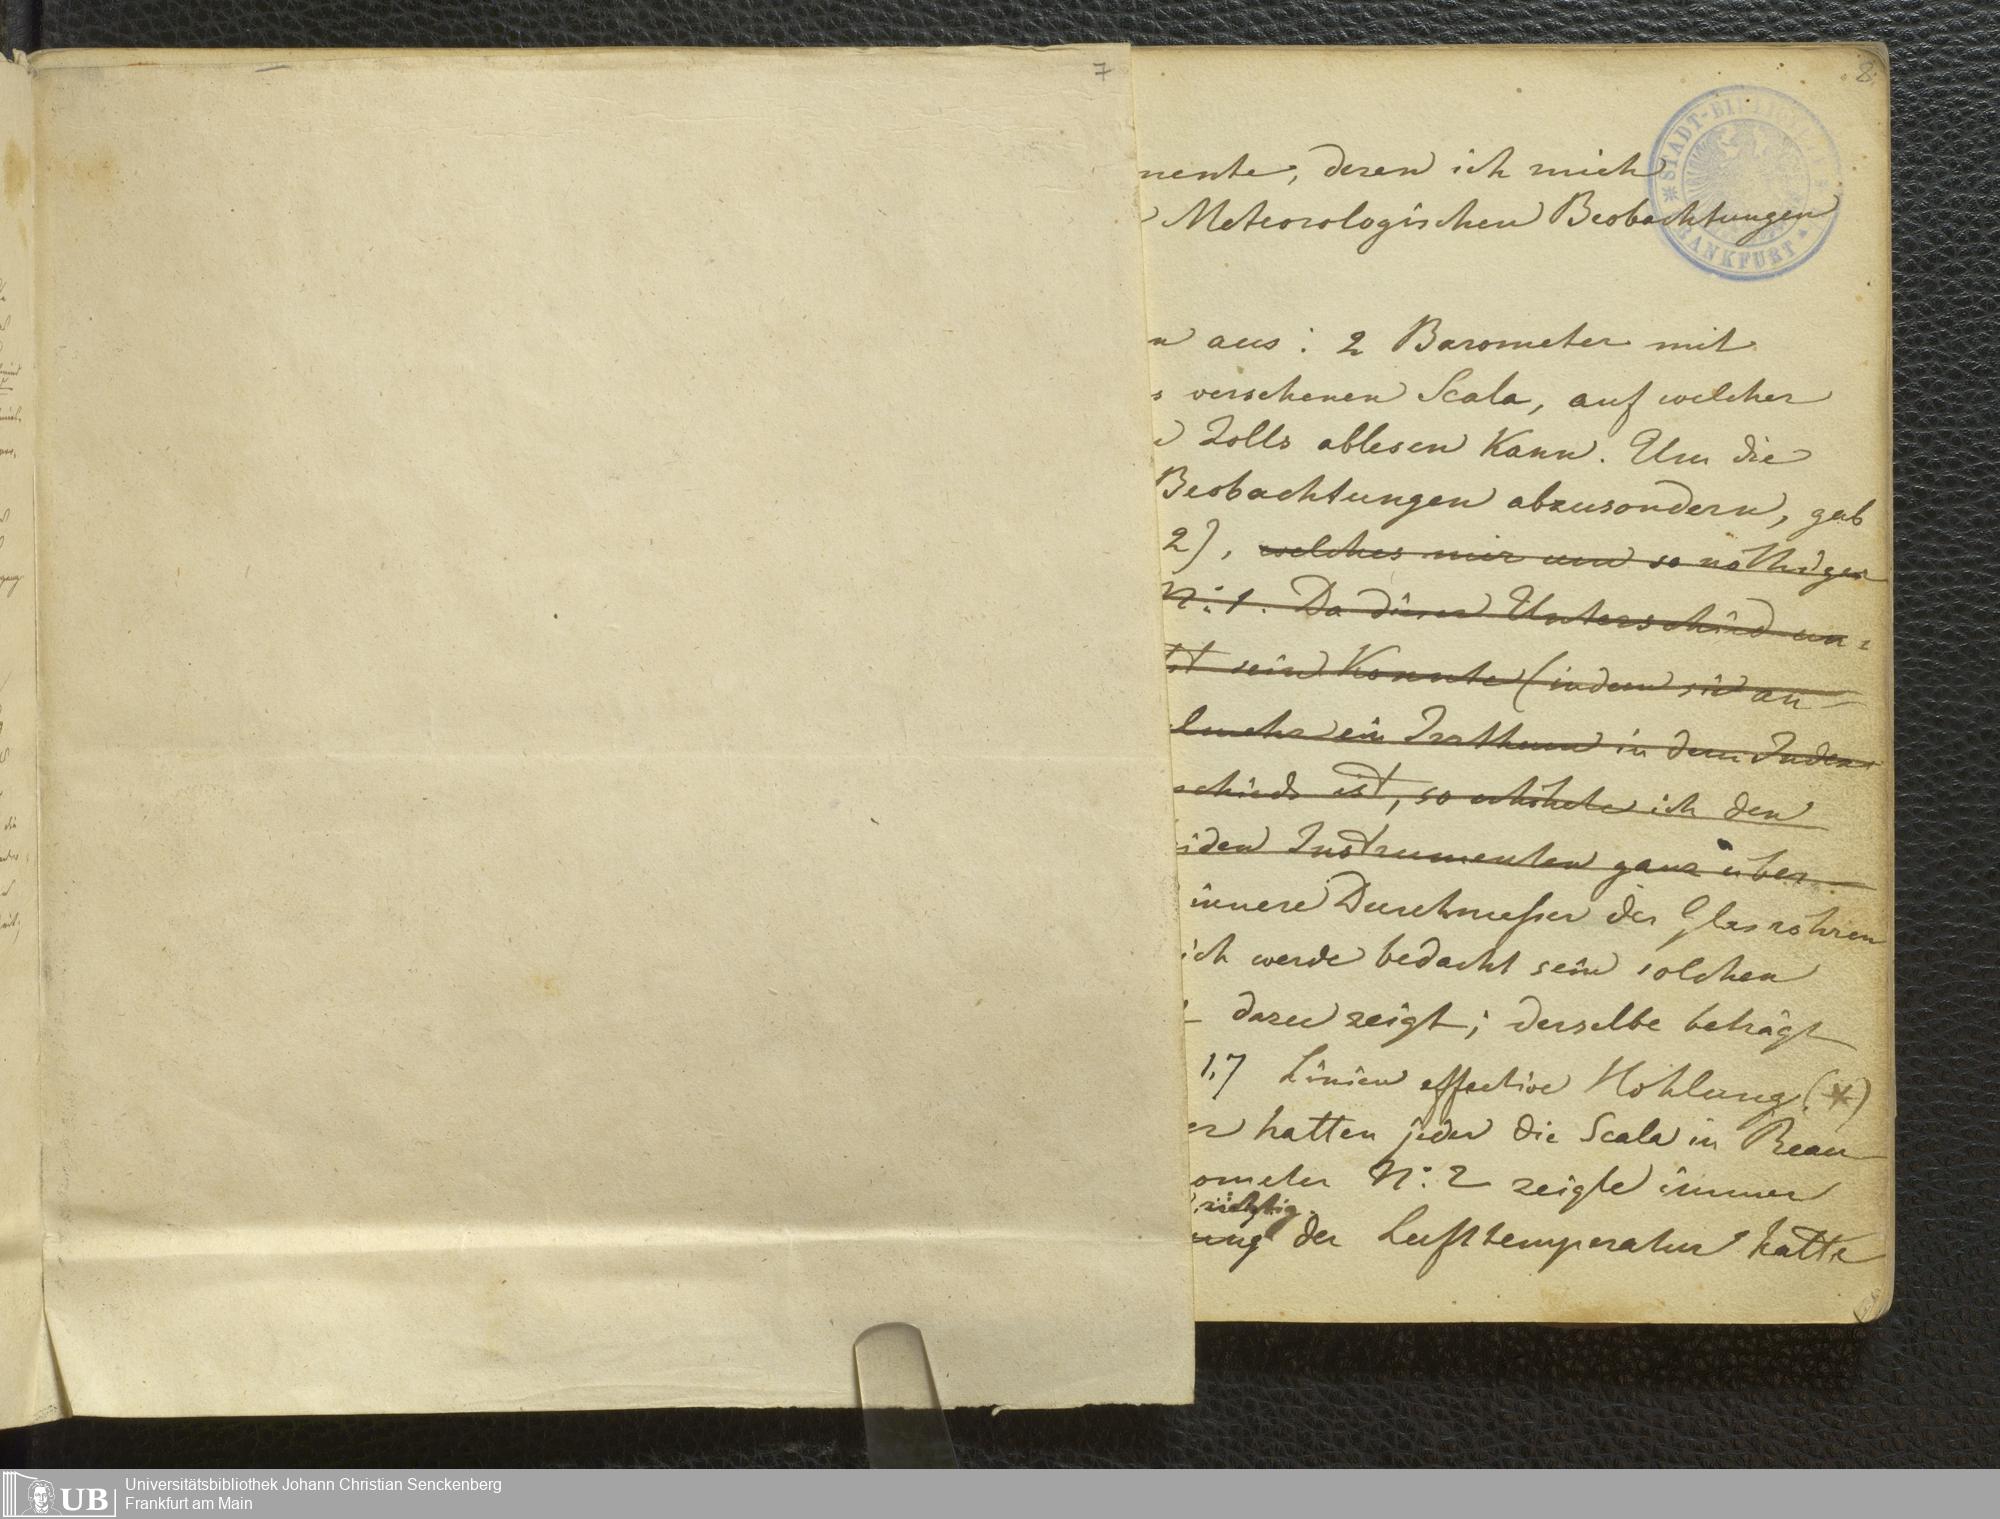 7
8.
STADT-BIBLIOTHEK
FRANKFURT
nente, deren ich mich
Meteorologischen Beobachtungen
n aus: 2 Barometer mit
s versehenen Scala, auf welcher
Zolls ablesen kann. Um die
Beobachtungen abzusondern, gab
2), welches mir um so nöthiger
N: 1. Da dieser Unterschied un=
st sein konnte (indem sie an
lmehr ein Irrthum in dem
schieds ist, so erhöhete ich den
iden Instrumenten ganz über
innere Durchmeßer der Glasröhren
ich werde bedacht sein solchen
dazu zeigt; derselbe beträgt
1,7 Linien effective Höhlung. (*)
er hatten jeder die Scala in Reau
ometer N: 2 zeigte immer
richtig.
ung der Lufttemperatur hatte
UB
Universitätsbibliothek Johann Christian Senckenberg
Frankfurt am Main